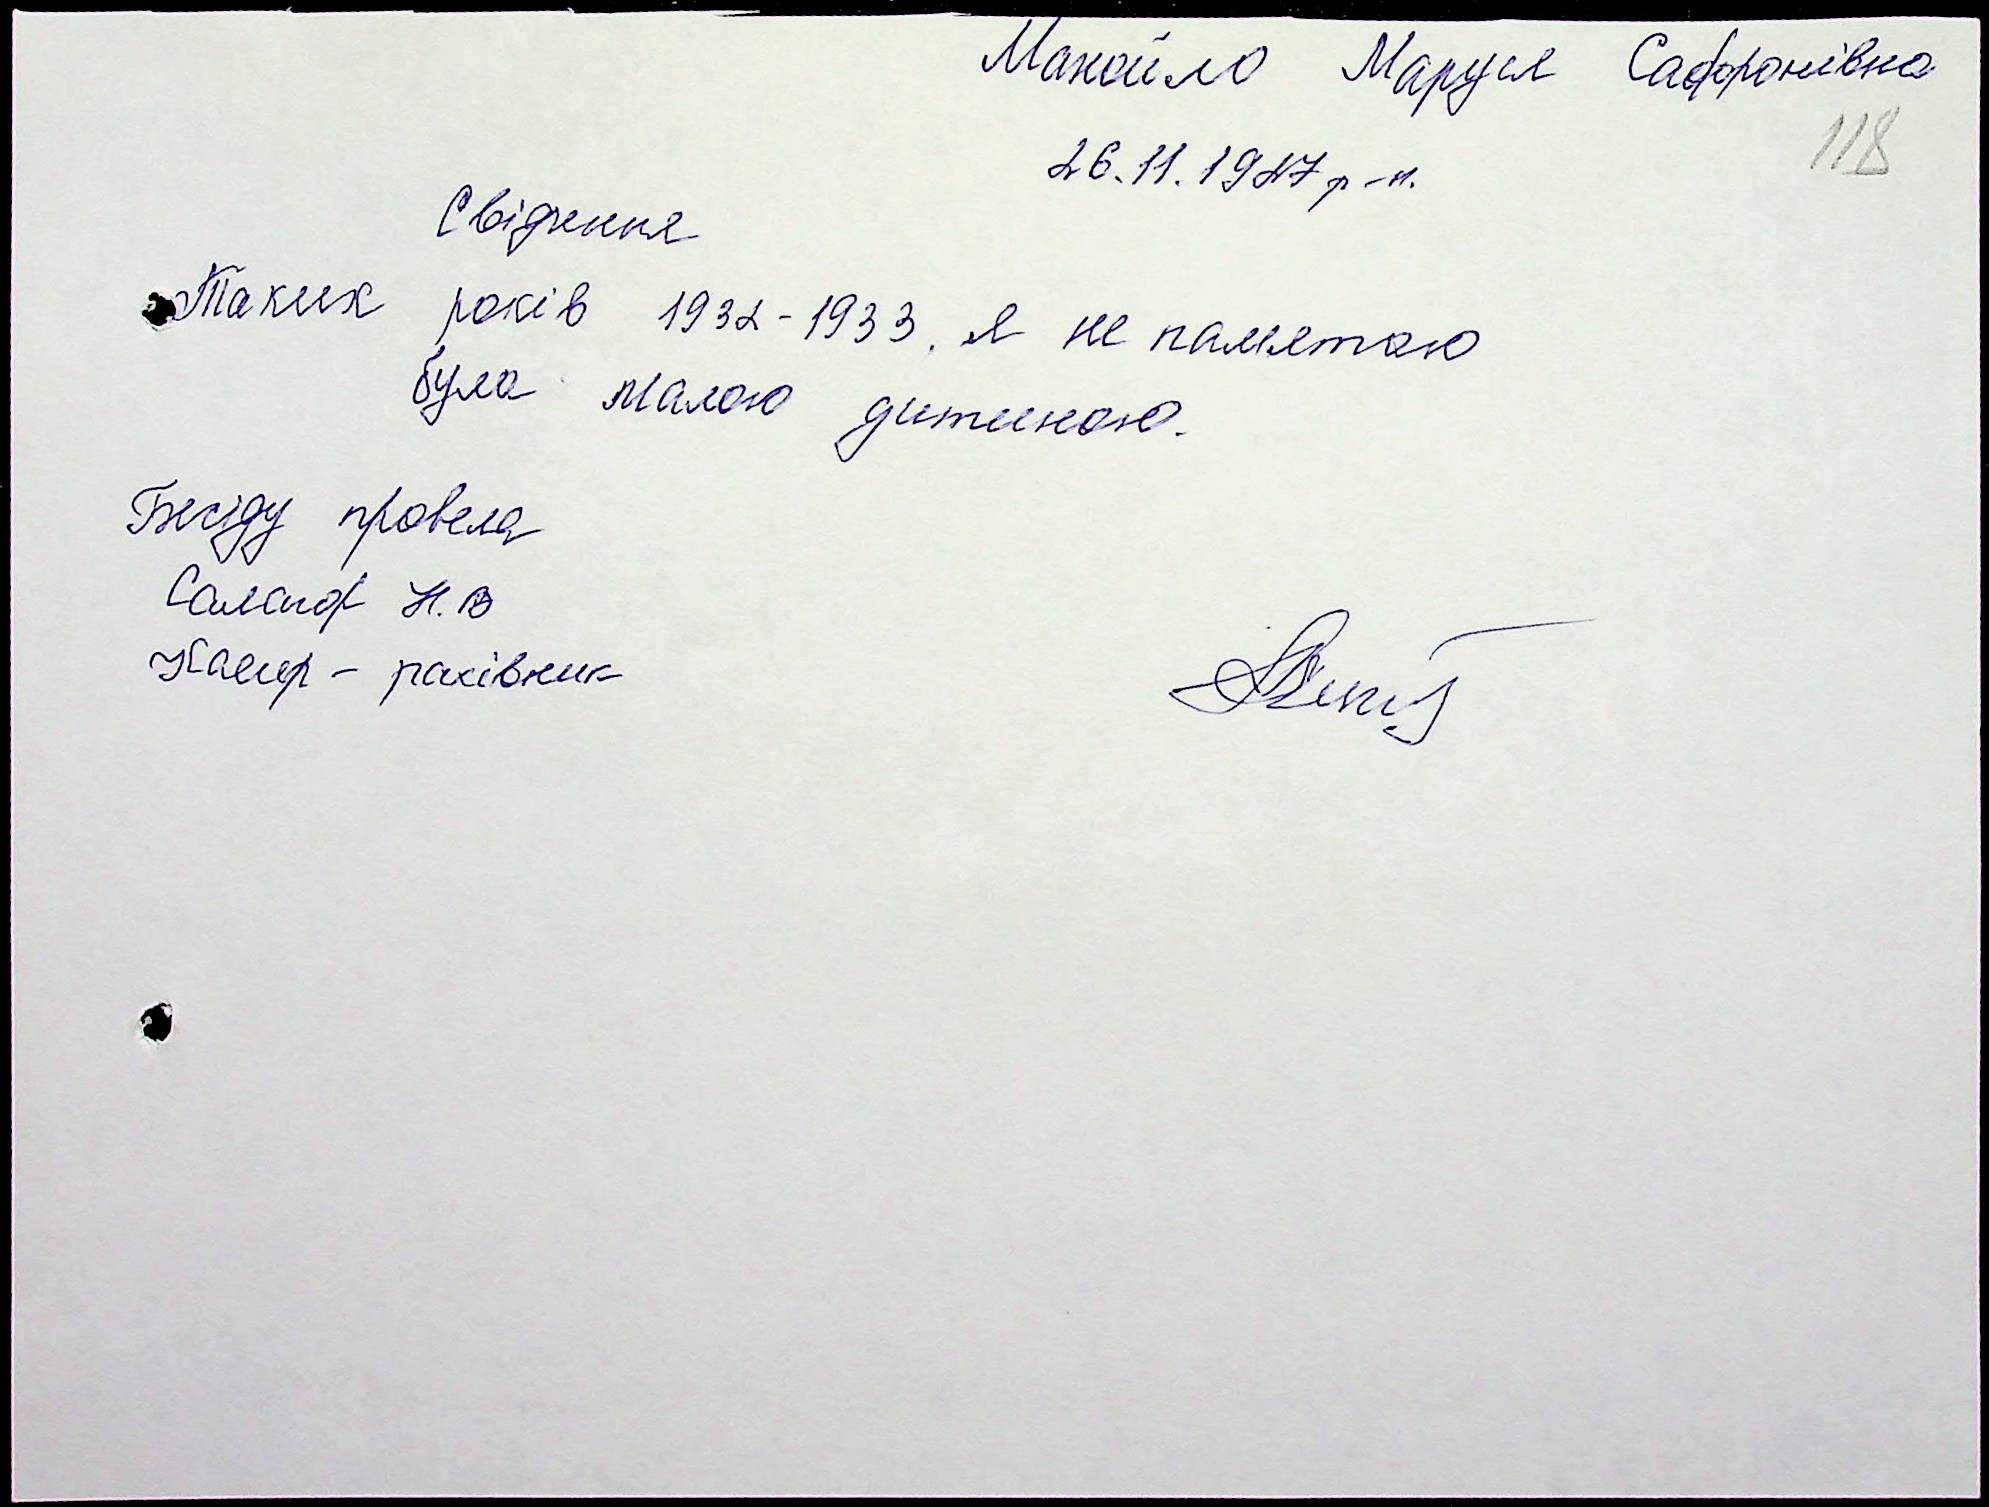 Манойло Маруся Сафронівна
118
26.11.1927 р-н.
Свідчення
Таких років 1932-1933. я не памятаю
була малою дитиною.
Бесіду провела
Саламор Н.В
Касир - рахівник